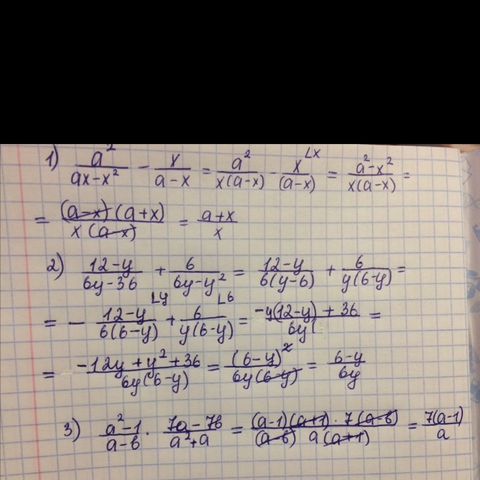 1) a²/(ax-x²) - x/(a-x) = a²/(x(a-x)) - x^{Lx}/(a-x) = (a²-x²)/(x(a-x)) =
= (a-x)(a+x)/(x(a-x)) = (a+x)/x
2) (12-y)/(6y-36) + 6/(6y-y²) = (12-y)/(6(y-6)) + 6/(y(6-y)) =
= - (12-y)^{Ly}/(6(6-y)) + 6^{L6}/(y(6-y)) = (-y(12-y)+36)/(6y( =
= (-12y+y²+36)/(6y(6-y)) = (6-y)²/(6y(6-y)) = (6-y)/(6y)
3) (a²-1)/(a-b) · (7a-7b)/(a²+a) = (a-1)(a+1)·7(a-b)/((a-b) a(a+1)) = 7(a-1)/a